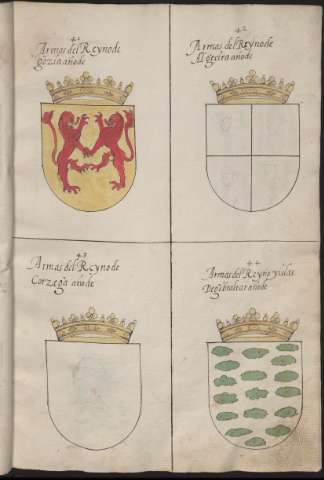 41
Armas del Reyno de
gozia añode
42
Armas del Reyno de
Algezira añode
43
Armas del Reyno de
Corzega añode
44
Armas del Reyno yslas
Degibraltar añode